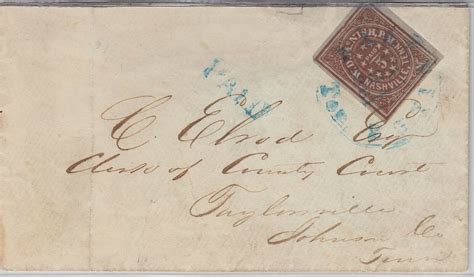 W.D. McNISH, P.M.
NASHVILLE, TENN.
5
PAID
C. Elrod Esq
Clerk of County Court
Taylorsville
Johnson Co
Tenn